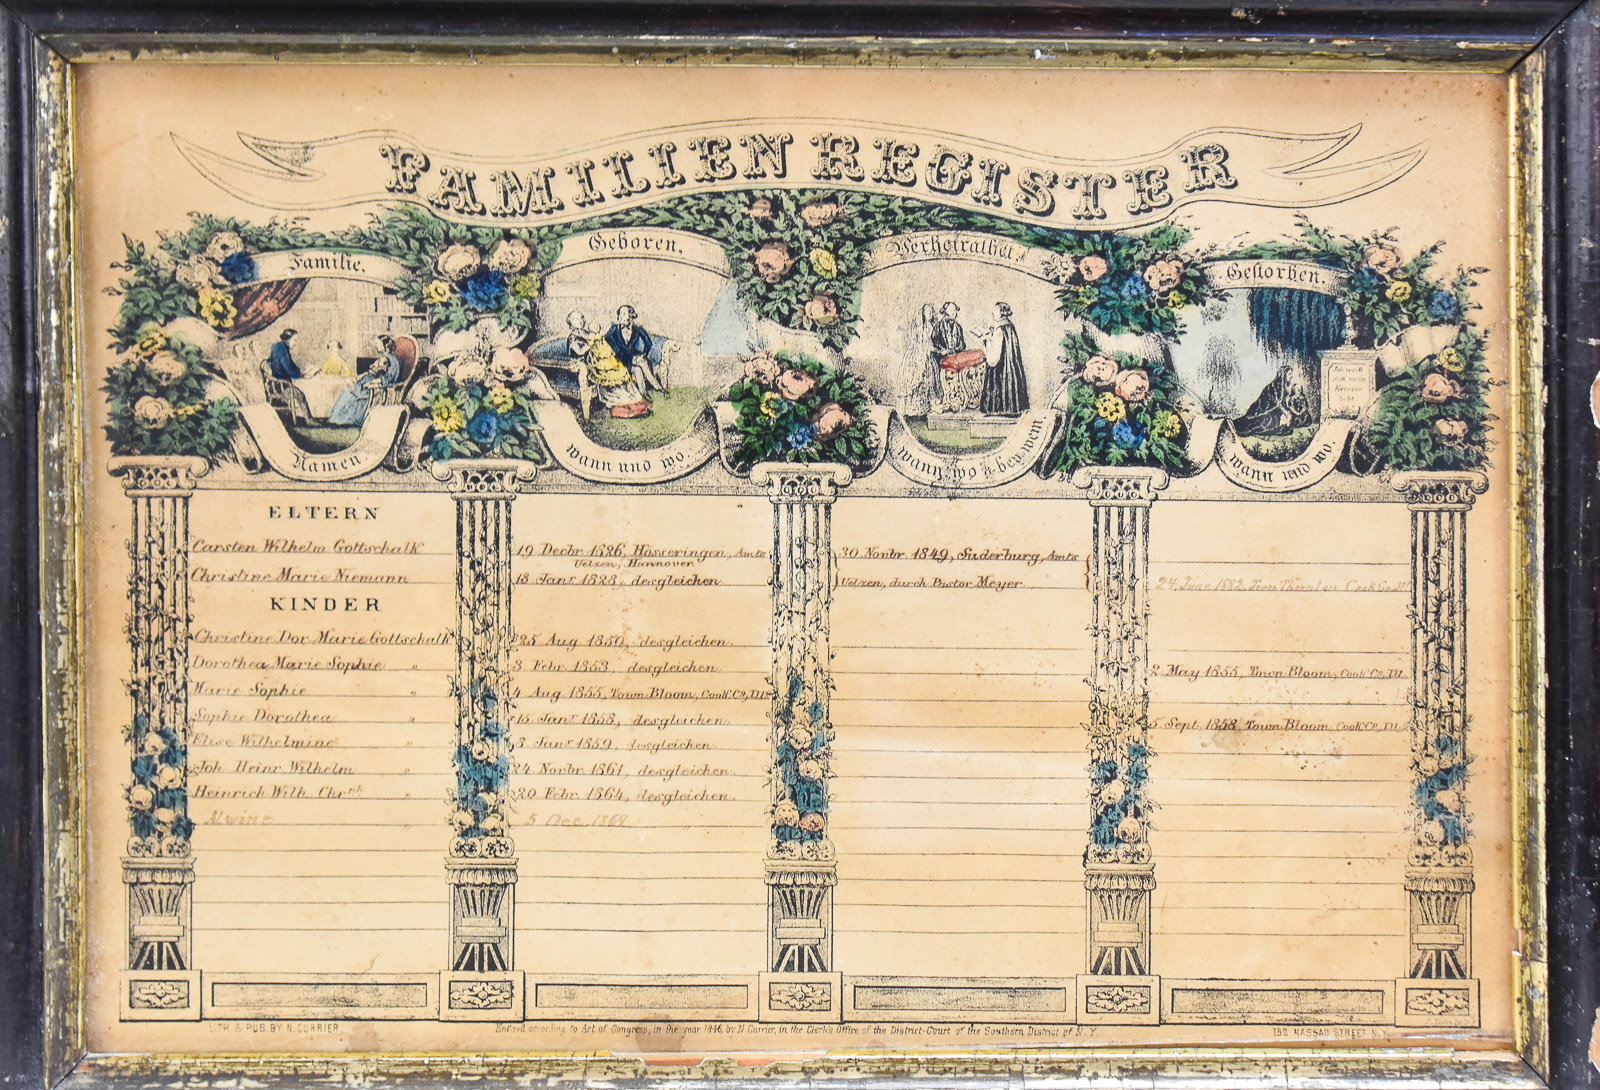 FAMILIEN REGISTER
Familie.
Geboren.
Verheirathet.
Gestorben.
Ich weiß daß mein Erlöser lebt
Namen
wann und wo.
wann, wo & bey wem
wann und wo.
ELTERN
Carsten Wilhelm Gottschalk 19 Decbr 1826, Hösseringen, Amts 30 Novbr 1849, Suderburg, Amts
Uelzen, Hannover
Christine Marie Niemann 18 Janr 1828, desgleichen Uelzen, durch Pastor Meyer 24 June 1882 Town Thornton Cook Co. Ill
KINDER
Christine Dor. Marie Gottschalk 25 Aug 1850, desgleichen
Dorothea Marie Sophie " 3 Febr 1853, desgleichen 2 May 1855, Town Bloom, Cook Co, Ill
Marie Sophie " 4 Aug 1855, Town Bloom, Cook Co, Ills
Sophie Dorothea " 15 Janr 1858, desgleichen 5 Sept. 1858 Town Bloom, Cook Co, Ill
Elise Wilhelmine " 3 Janr 1859, desgleichen
Joh Heinr Wilhelm " 24 Novbr 1861, desgleichen
Heinrich Wilh. " 20 Febr 1864, desgleichen
Alwine " 5 Dec. "
LITH. & PUB. BY N. CURRIER
Entered according to Act of Congress, in the year 1846, by N. Currier, in the Clerk's Office of the District-Court of the Southern District of N. Y.
152 NASSAU STREET N.Y.